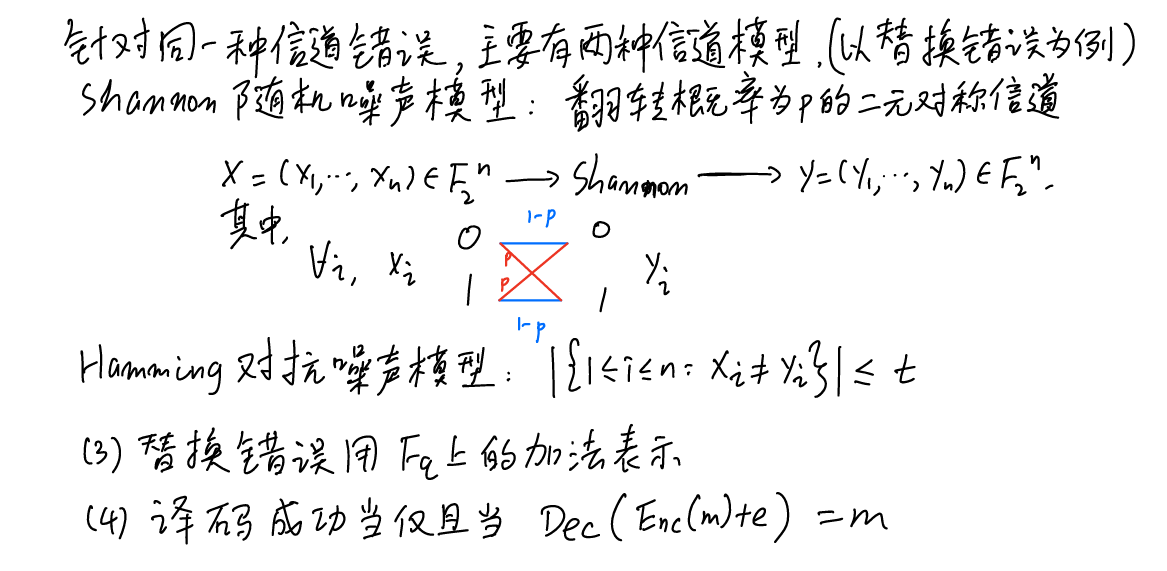 针对同一种信道错误,主要有两种信道模型.(以替换错误为例)
Shannon 随机噪声模型: 翻转概率为p的二元对称信道
X = (x₁,…, xₙ) ∈ F₂ⁿ → Shannon → Y = (Y₁,…, Yₙ) ∈ F₂ⁿ.
其中,
1-p
0 0
∀i, xᵢ p Yᵢ
p
1 1
1-p
Hamming 对抗噪声模型: |{1≤i≤n: xᵢ≠Yᵢ}| ≤ t
(3) 替换错误用 F_q 上的加法表示
(4) 译码成功当仅且当 Dec(Enc(m)+e) = m